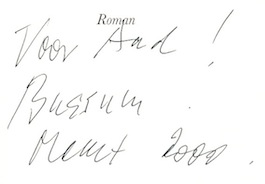 Roman
Voor Aad!
Bussum.
Maart 2000.